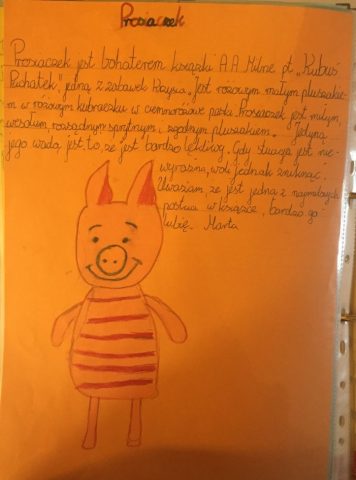 Prosiaczek
Prosiaczek jest bohaterem książki A.A. Milne pt. „Kubuś
Puchatek", jedna z zabawek Krzysia. Jest różowym małym pluszakie-
m w różowym kubraczku w ciemnoróżowe paski. Prosiaczek jest miłym,
wesołym, rozsądnym, sprytnym i zgodnym pluszakiem. Jedyną
jego wadą jest to, że jest bardzo lękliwy. Gdy sytuacja jest nie-
wyraźna, woli jednak zniknąć.
Uważam, że jest jedną z najmilszych
postaci w książce, bardzo go
lubię. Marta